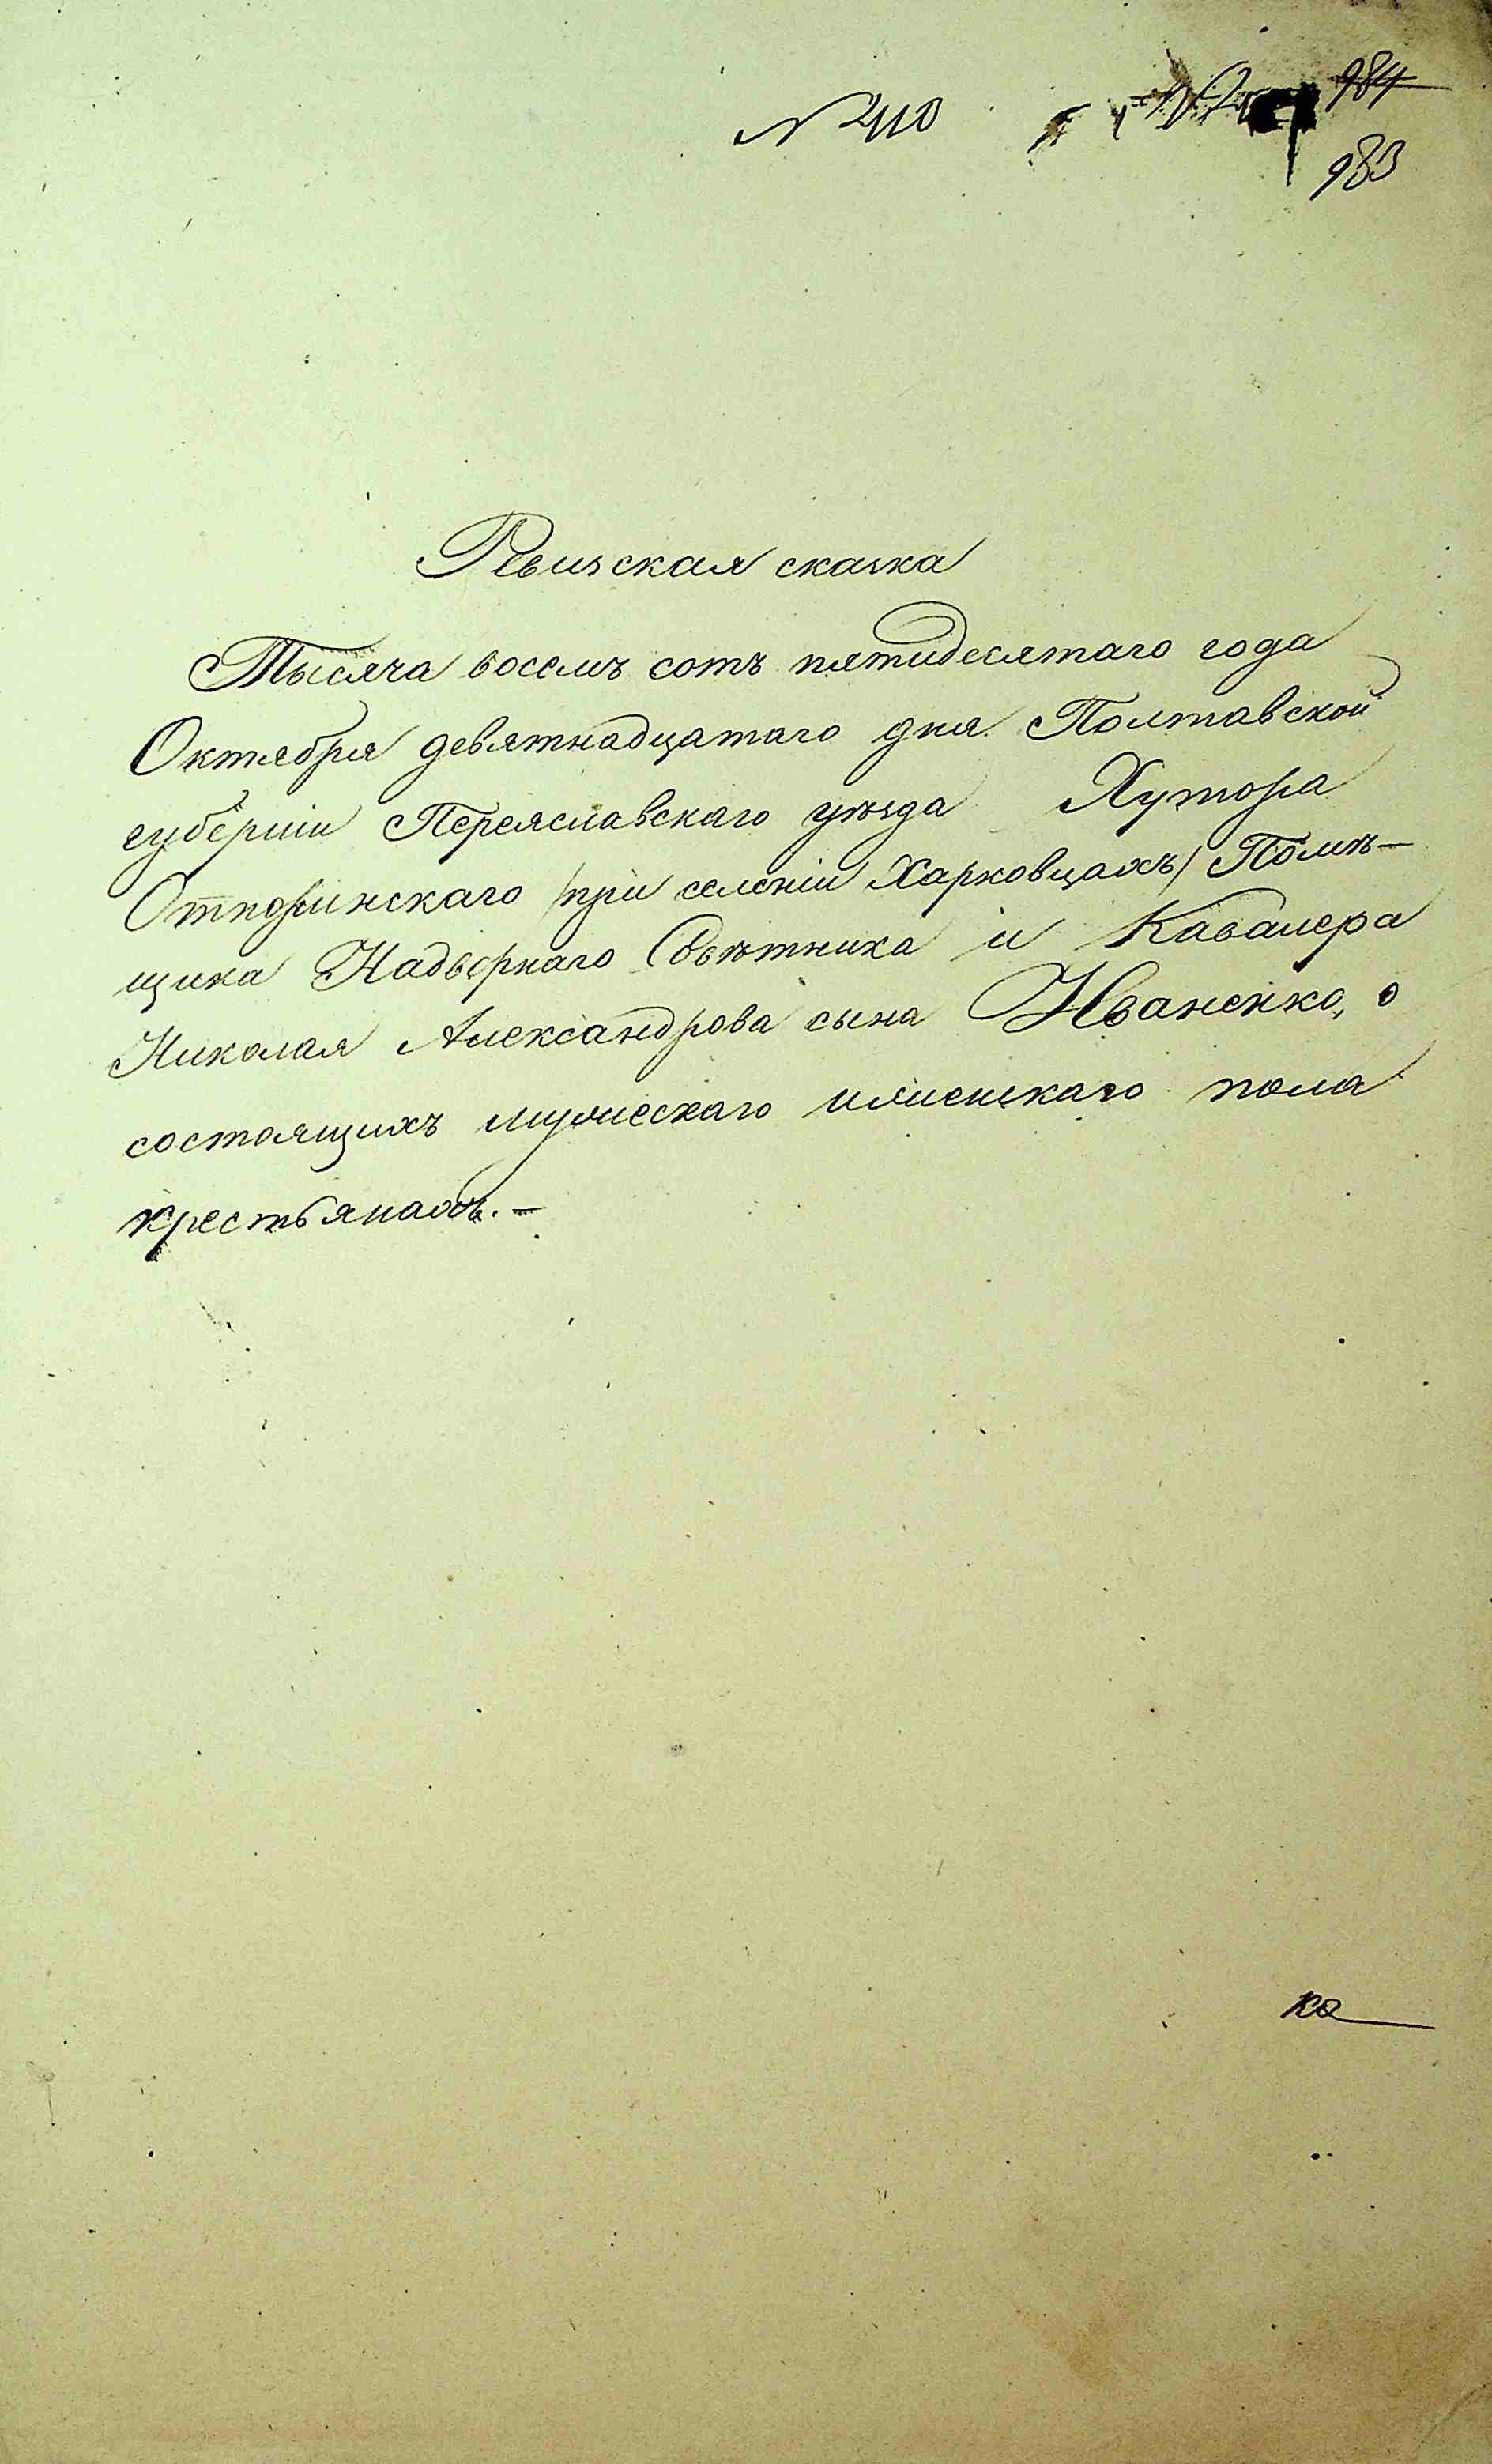 N 410
984
983
Ревизская сказка
Тысяча восемъ сотъ пятидесятаго года
Октября девятнадцатаго дня Полтавской
губерніи Переяславскаго уѣзда Хутора
при селеніи Харковцахъ/ Помѣ-
щика Надворнаго Совѣтника и Кавалера
Николая Александрова сына Иваненко, о
состоящихъ мужескаго и женскаго пола
крестьянахъ. —